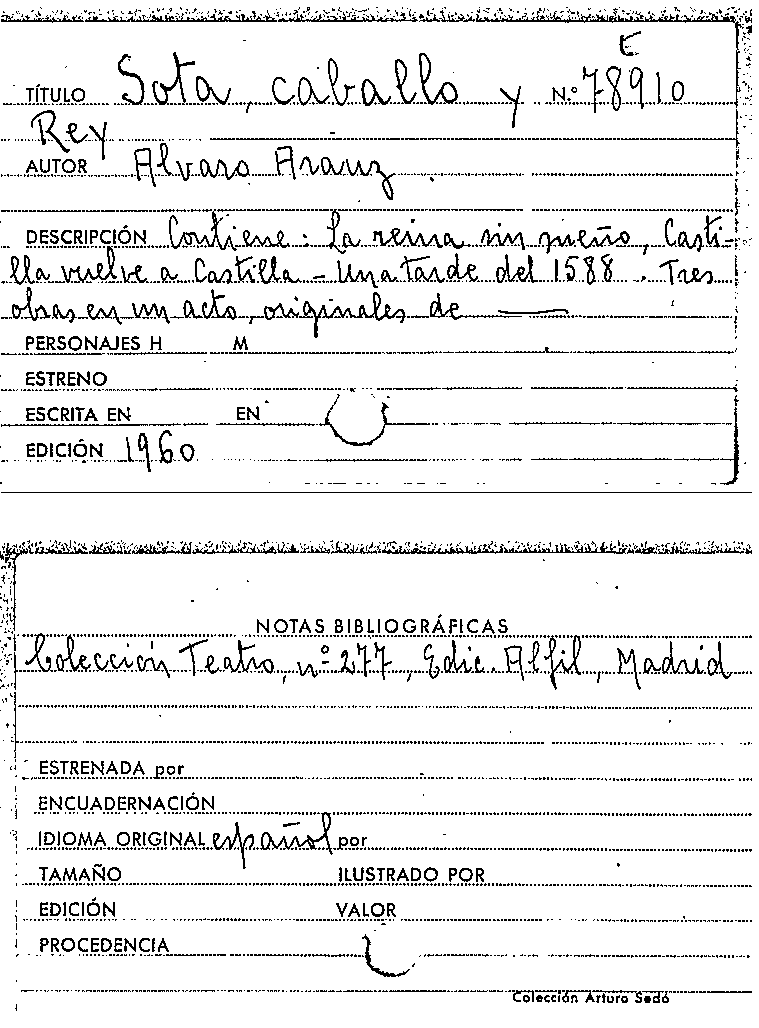 E
TÍTULO Sota, caballo y N.º 78910
Rey
AUTOR Alvaro Arauz.
DESCRIPCIÓN Contiene: La reina sin sueño, Casti-
lla vuelve a Castilla - Una tarde del 1588. Tres
obras en un acto, originales de ——
PERSONAJES H M
ESTRENO
ESCRITA EN EN
EDICIÓN 1960
NOTAS BIBLIOGRÁFICAS
Colección Teatro, nº 277, Edic. Alfil, Madrid
ESTRENADA por
ENCUADERNACIÓN
IDIOMA ORIGINAL español por
TAMAÑO ILUSTRADO POR
EDICIÓN VALOR
PROCEDENCIA
Colección Arturo Sedó